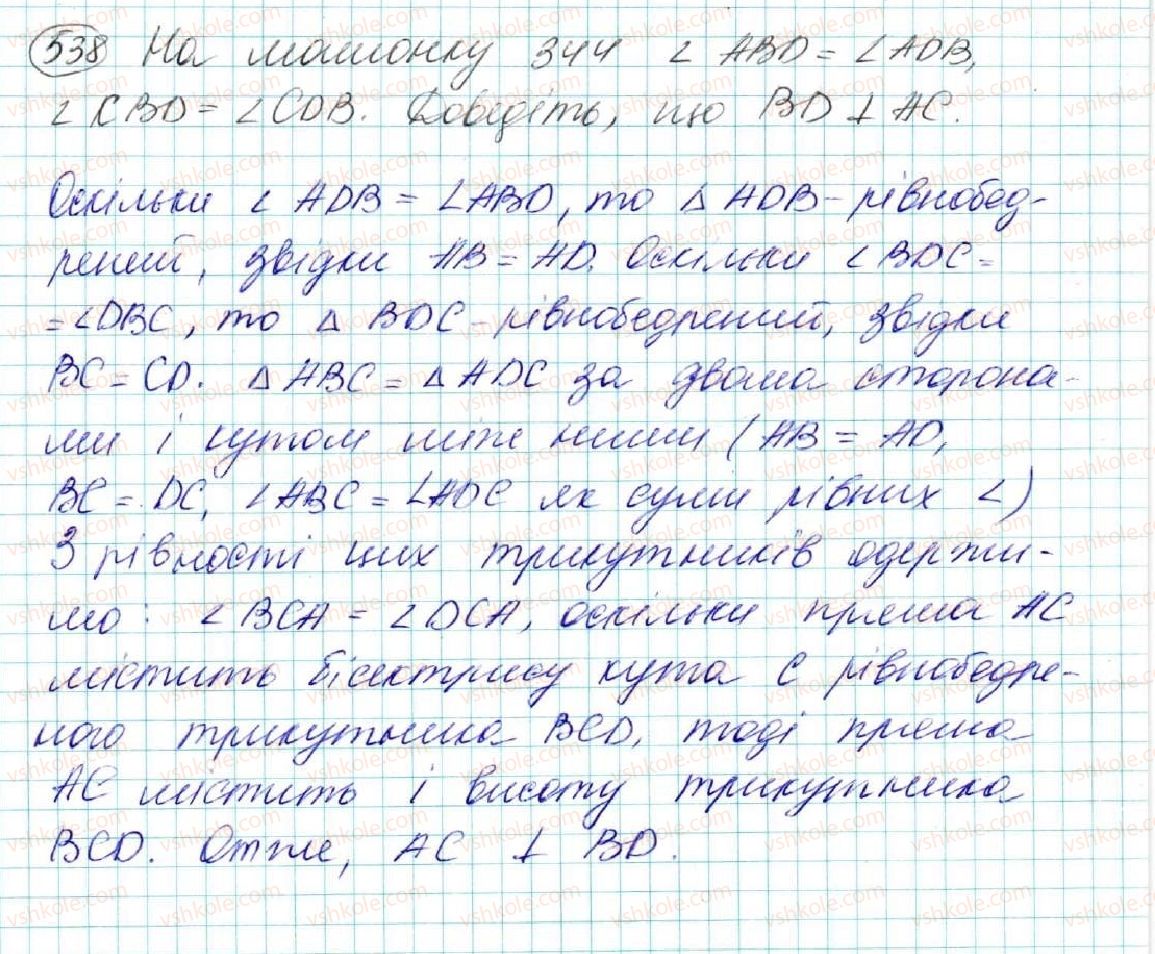 538 На малюнку 344 ∠ ABD = ∠ADB,
∠ CBD = ∠CDB. Доведіть, що BD ⊥ AC.
Оскільки ∠ ADB = ∠ABD, то △ ADB - рівнобед-
рений, звідки AB = AD. Оскільки ∠ BDC =
= ∠DBC, то △ BDC - рівнобедрений, звідки
BC = CD. △ ABC = △ ADC за двома сторона-
ми і кутом між ними (AB = AD,
BC = DC, ∠ABC = ∠ADC як суми рівних ∠)
З рівності цих трикутників одержи-
мо: ∠ BCA = ∠ DCA, оскільки пряма AC
містить бісектрису кута C рівнобедре-
ного трикутника BCD, тоді пряма
AC містить і висоту трикутника
BCD. Отже, AC ⊥ BD.